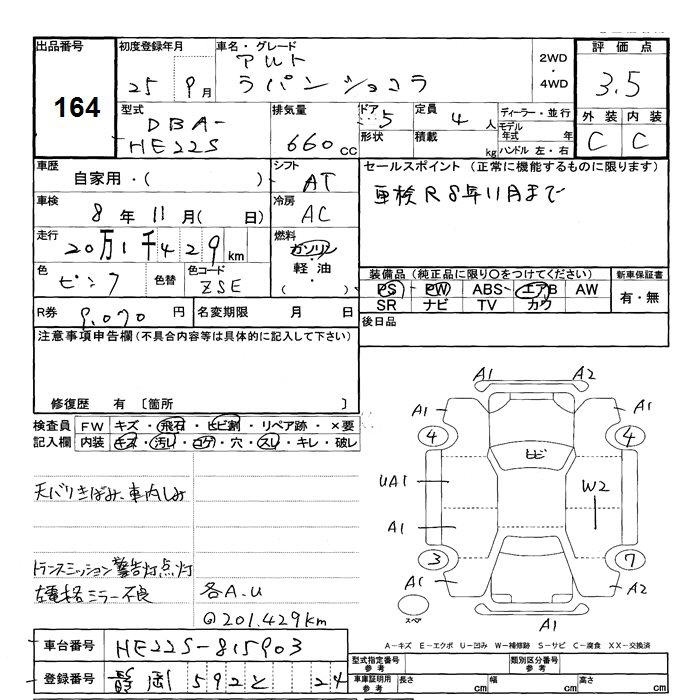 出品番号 初度登録年月 車名・グレード 評価点
164 25 9月 アルト ラパン ショコラ 2WD・4WD 3.5
型式 排気量 ドア 定員 ディーラー・並行 外装 内装
DBA-HE22S 660cc 5 4人 モデル年式 年 C C
形状 積載 kg ハンドル 左・右
車歴 シフト セールスポイント (正常に機能するものに限ります)
自家用・( ) AT 車検R8年11月まで
車検 冷房
8年11月( 日) AC
走行 燃料
20万1千429km ガソリン・軽油・( )
色 色替 色コード 装備品(純正品に限り〇をつけてください) 新車保証書
ピンク ZSE PS PW ABS エアB AW 有・無
SR ナビ TV カワ
R券 9,070円 名変期限 月 日 後日品
注意事項申告欄(不具合内容等は具体的に記入して下さい)
修復歴 有〔箇所 〕
検査員 FW キズ・飛石・ヒビ割・リペア跡・×要
記入欄 内装 キズ・汚れ・コゲ・穴・スレ・キレ・破レ
天バリきばみ、車内しみ
トランスミッション警告灯点灯
左電格ミラー不良
各A.U
@201.429km
A1 A2
A1 A1
4 4
ヒビ
UA1 W2
A1
3 7
A1 A2
スペア A1
A-キズ E-エクボ U-凹み W-補修跡 S-サビ C-腐食 XX-交換済
車台番号 HE22S-815903
登録番号 静岡592と 24
型式指定番号 参考 類別区分番号 参考
車庫証明用 参考 長さ cm 幅 cm 高さ cm